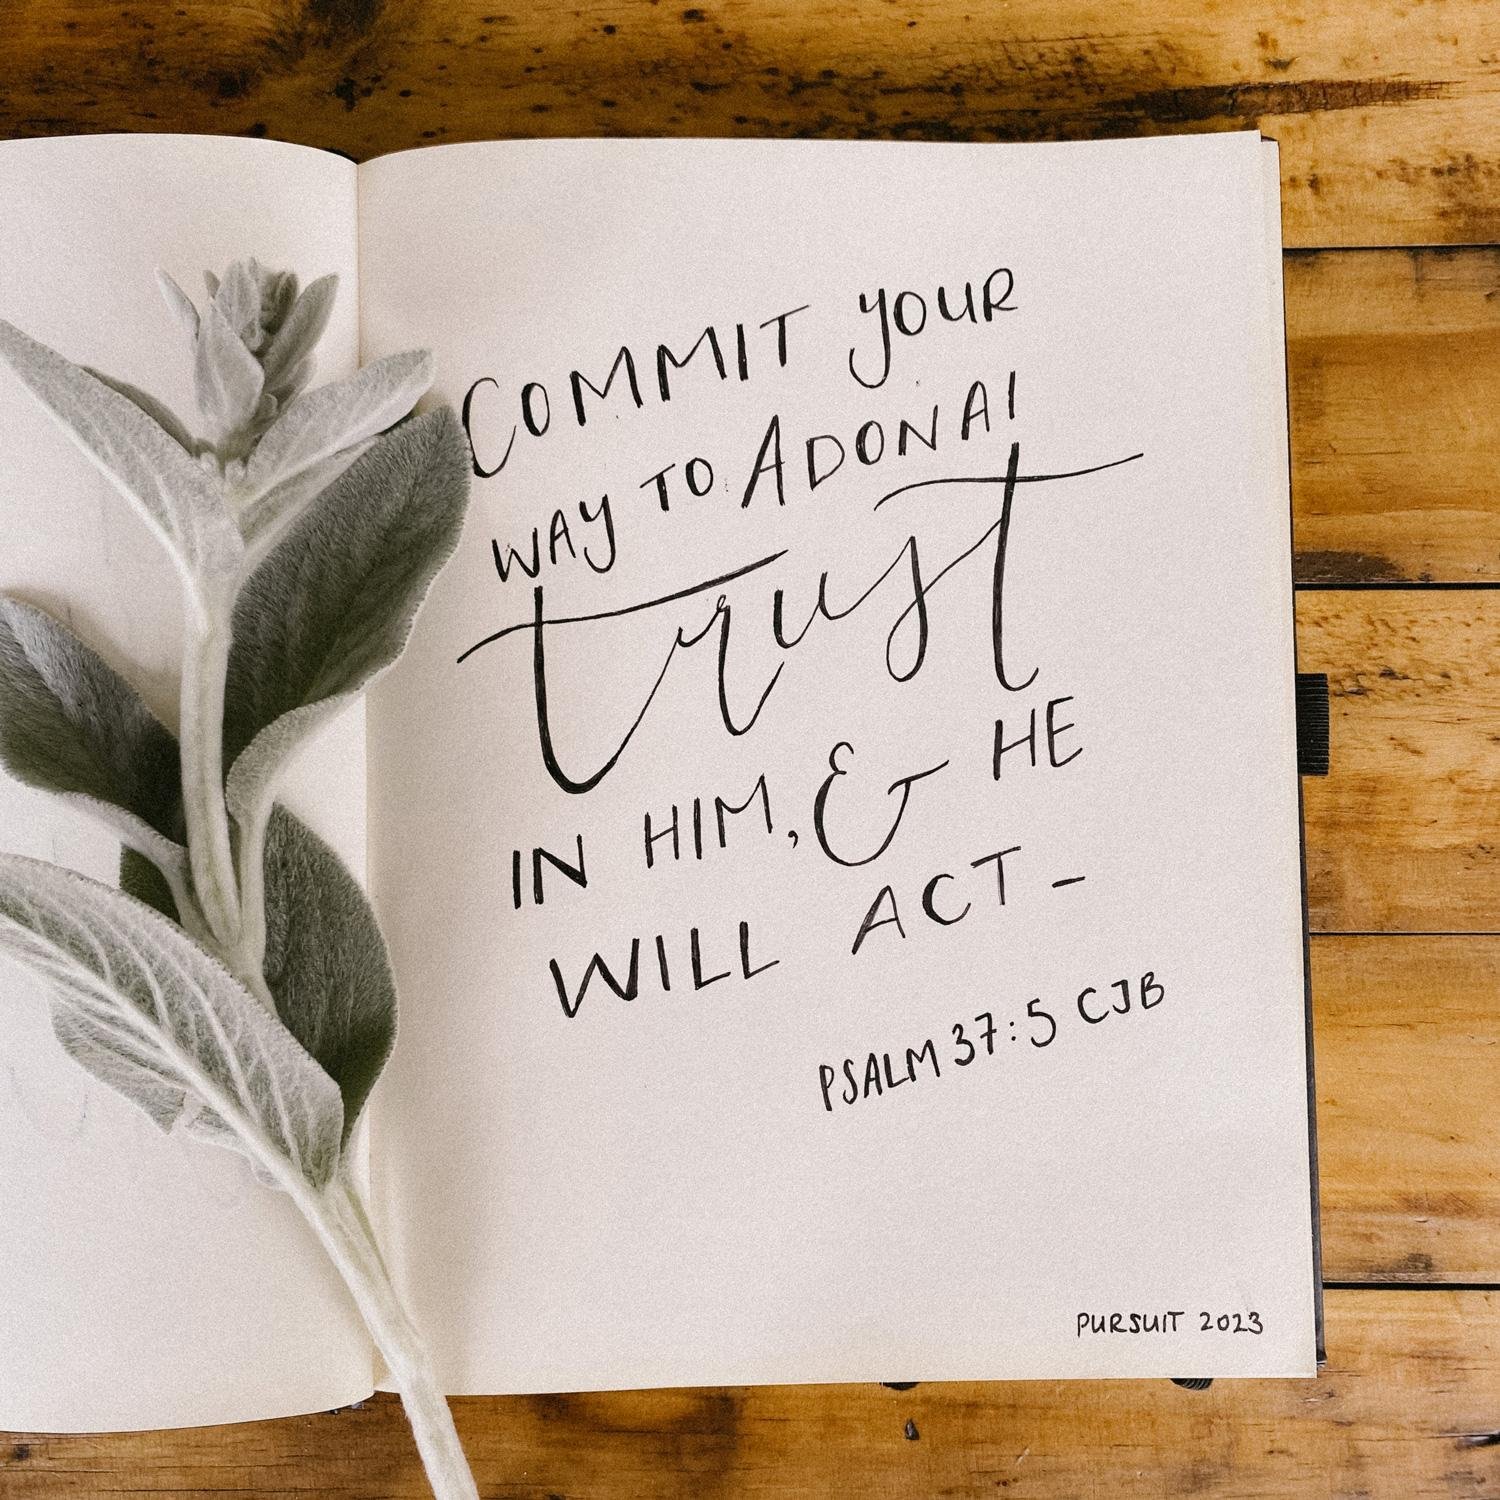 COMMIT YOUR
WAY TO ADONAI
trust
IN HIM, & HE
WILL ACT -
PSALM 37:5 CJB
PURSUIT 2023